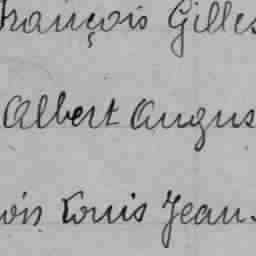 François Gilles
Albert Augus
ois Louis Jean